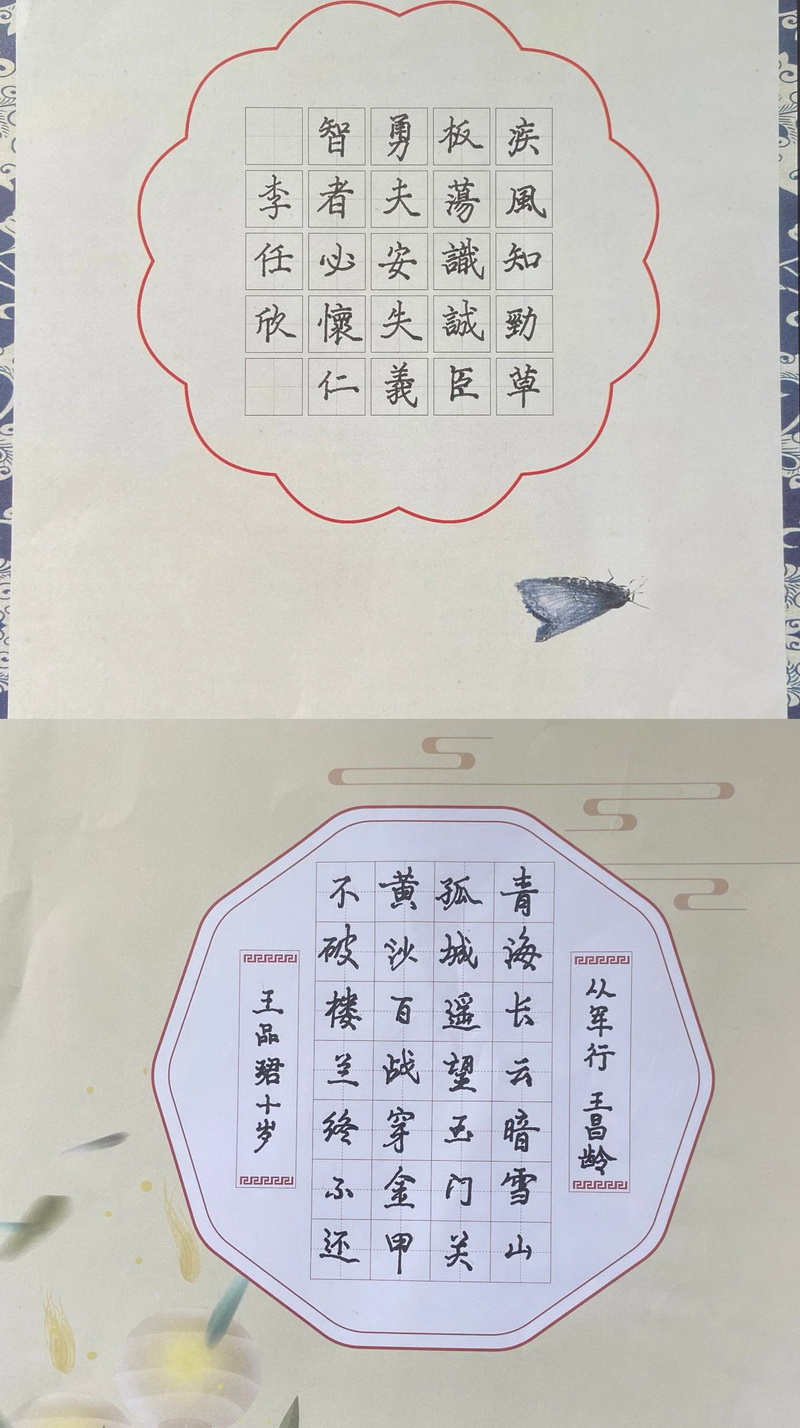 疾風知勁草
板蕩識誠臣
勇夫安失義
智者必懷仁
李任欣
从军行 王昌龄
青海长云暗雪山
孤城遥望玉门关
黄沙百战穿金甲
不破楼兰终不还
王品珺十岁